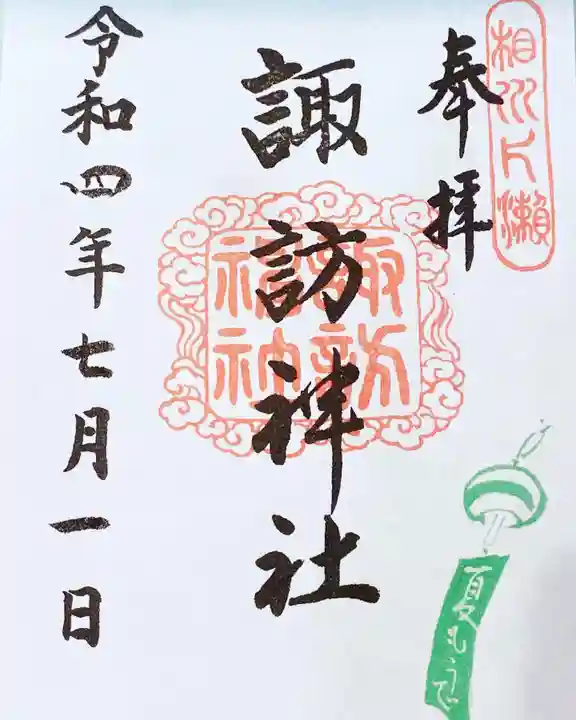 奉拝
相州片瀬
諏訪神社
諏訪神社
令和四年七月一日
夏もうで